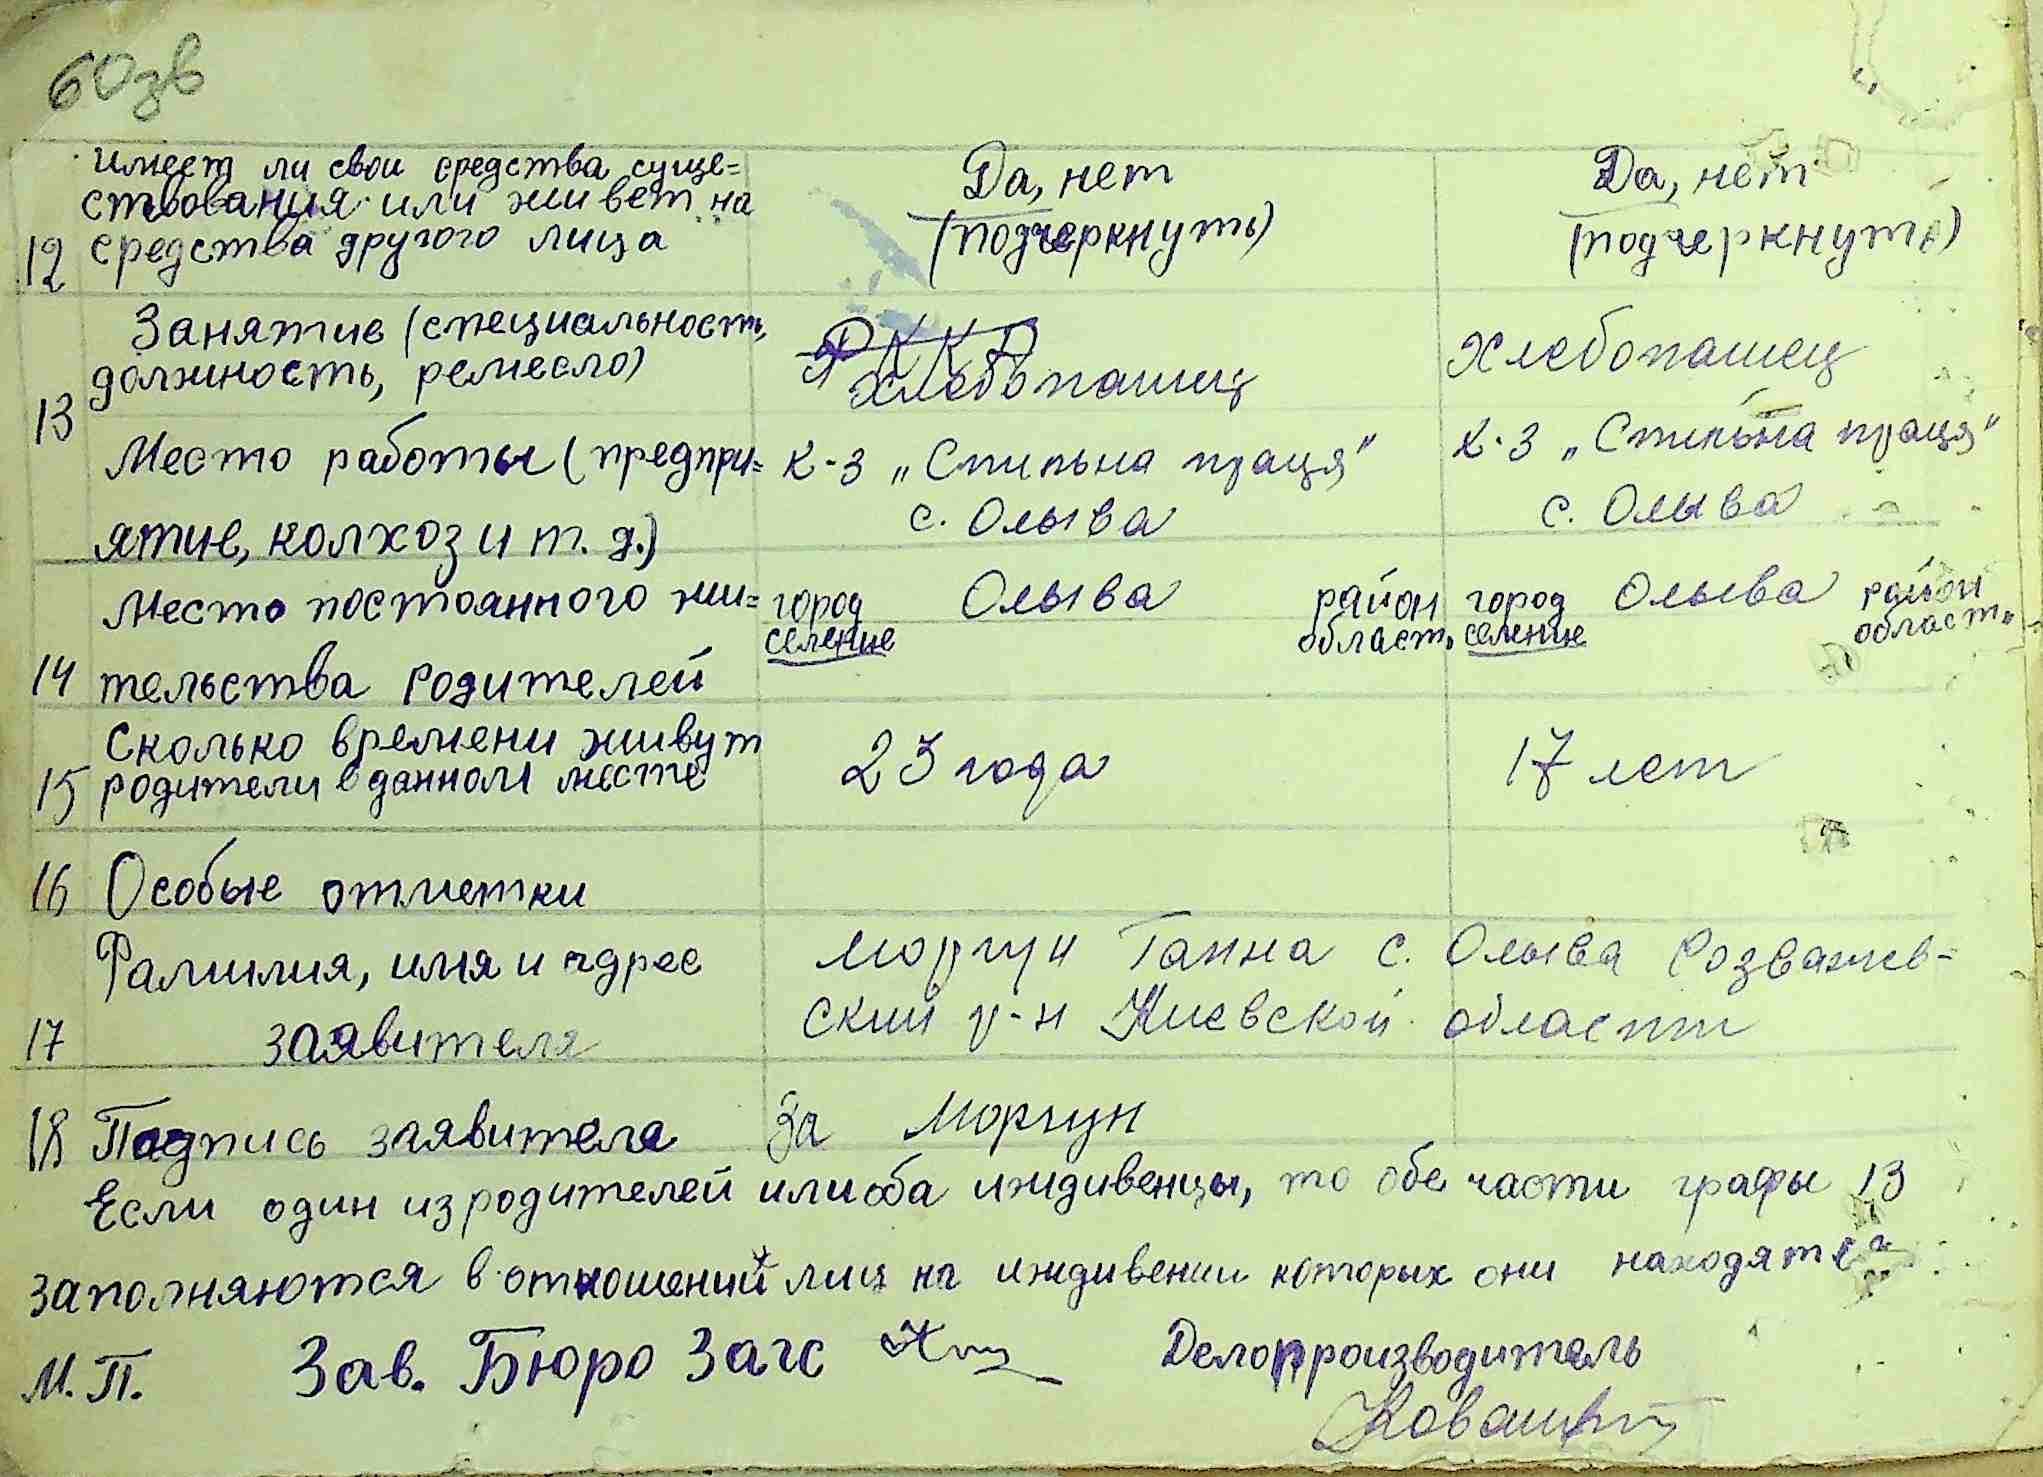 60зв
имеет ли свои средства суще=
ствования или живет на
12 средства другого лица
Да, нет
(подчеркнуть)
Да, нет
(подчеркнуть)
Занятие (специальность,
13 должность, ремесло)
РККА
хлебопашец
Хлебопашец
Место работы (предпри=
ятие, колхоз и т. д.)
к-з „Спильна праця"
с. Олыва
к-з „Спильна праця"
с. Олыва
Место постоянного жи=
14 тельства родителей
город Олыва район
селение област.
город Олыва район
селение област.
Сколько времени живут
15 родители в данном месте
23 года
17 лет
16 Особые отметки
Фамилия, имя и адрес
17 заявителя
Моргун Ганна с. Олыва Розважев-
ский р-н Киевской области
18 Подпись заявителя За Моргун
Если один из родителей или оба иждивенцы, то обе части графы 13
заполняются в отношений лиц на иждивении которых они находятся
М.П. Зав. Бюро Загс Делопроизводитель